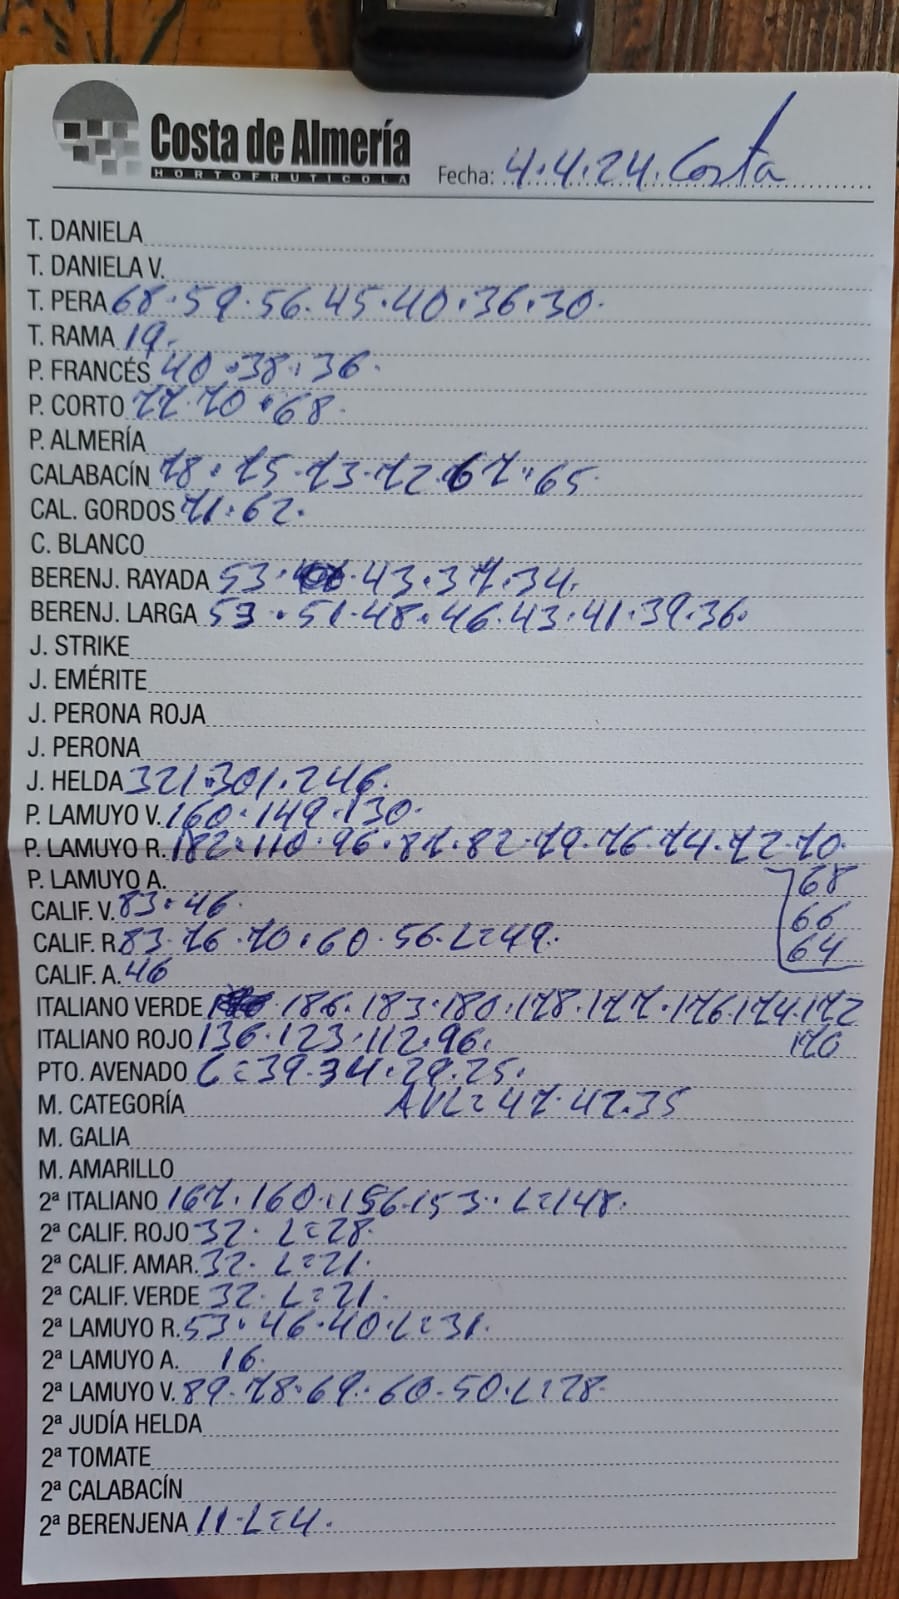 Costa de Almería
HORTOFRUTICOLA
Fecha: 4.4.24. Costa
T. DANIELA
T. DANIELA V.
T. PERA 68.59.56.45.40.36.30.
T. RAMA 19.
P. FRANCÉS 40.38.36.
P. CORTO 77.70.68.
P. ALMERÍA
CALABACÍN 78.75.73.72.67.65.
CAL. GORDOS 71.62.
C. BLANCO
BERENJ. RAYADA 53.43.37.34.
BERENJ. LARGA 53.51.48.46.43.41.39.36.
J. STRIKE
J. EMÉRITE
J. PERONA ROJA
J. PERONA
J. HELDA 321.301.246.
P. LAMUYO V. 160.149.130.
P. LAMUYO R. 182.110.96.87.82.79.76.74.72.70.
P. LAMUYO A. 68
CALIF. V. 83.46. 66
CALIF. R. 83.76.70.60.56.L=49. 64
CALIF. A. 46
ITALIANO VERDE 186.183.180.178.177.176.174.172
ITALIANO ROJO 136.123.112.96. 170
PTO. AVENADO C=39.34.29.25.
M. CATEGORÍA AVL=47.42.35
M. GALIA
M. AMARILLO
2ª ITALIANO 167.160.156.153. L=148.
2ª CALIF. ROJO 32. L=28.
2ª CALIF. AMAR. 32. L=21.
2ª CALIF. VERDE 32. L=21.
2ª LAMUYO R. 53.46.40.L=31.
2ª LAMUYO A. 16.
2ª LAMUYO V. 89.78.69.60.50.L=28.
2ª JUDÍA HELDA
2ª TOMATE
2ª CALABACÍN
2ª BERENJENA 11.L=4.